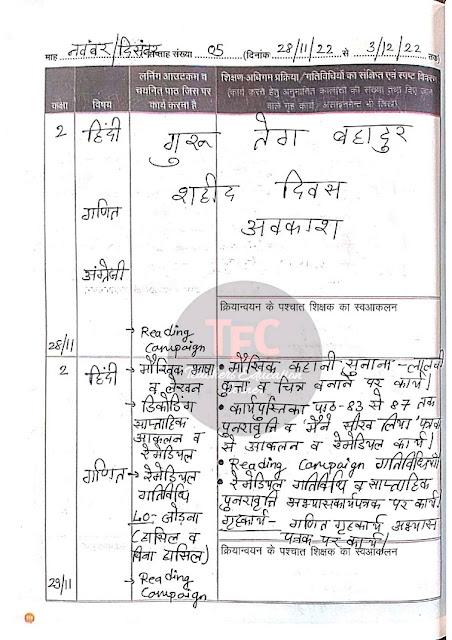 माह नवंबर/दिसंबर सप्ताह संख्या 05 (दिनांक 28/11/22 से 3/12/22 तक)
कक्षा
विषय
लर्निंग आउटकम व
चयनित पाठ जिस पर
कार्य करना है
शिक्षण-अधिगम प्रक्रिया/गतिविधियों का संक्षिप्त एवं स्पष्ट विवरण
(कार्य करने हेतु अनुमानित कालांशों की संख्या तथा दिए जाने
वाले गृह कार्य/असाइनमेन्ट भी लिखें)
2 हिंदी गुरू तेग बहादुर
शहीद दिवस
गणित
अवकाश
अंग्रेजी
क्रियान्वयन के पश्चात शिक्षक का स्वआकलन
TEC
28/11
→ Reading
Campaign
2 हिंदी
→ मौखिक भाषा
व लेखन
→ डिकोडिंग
साप्ताहिक
आकलन व
रेमेडियल
गणित → रेमेडियल
गतिविधि
LO- जोड़ना
(हासिल व
बिना हासिल)
→ Reading
Campaign
• मौखिक कहानी सुनाना - लालची
कुत्ता व चित्र बनाने पर कार्य।
• कार्यपुस्तिका पाठ-83 से 87 तक
पुनरावृत्ति व 'मैंने सीख लिया' पत्रक
से आकलन व रेमेडियल कार्य।
• Reading Campaign गतिविधियाँ
• रेमेडियल गतिविधि व साप्ताहिक
पुनरावृति अभ्यासकार्यपत्रक पर कार्य।
गृहकार्य - गणित गृहकार्य अभ्यास
पत्रक पर कार्य।
क्रियान्वयन के पश्चात शिक्षक का स्वआकलन
29/11